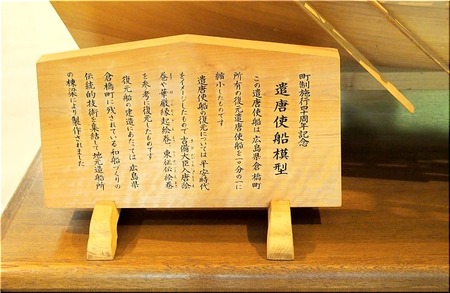 町制施行四十周年記念
遣唐使船模型
この遣唐使船は、広島県倉橋町
所有の復元遣唐使船を十分の一に
縮小したものです
遣唐使船の復元については平安時代
をイメージしたもので吉備大臣入唐絵
巻や華厳縁起絵巻、東征伝絵巻
を参考に復元したものです
復元船の建造にあたっては、広島県
倉橋町に残されている和船づくりの
伝統的技術を集結して地元造船所
の棟梁により製作されました